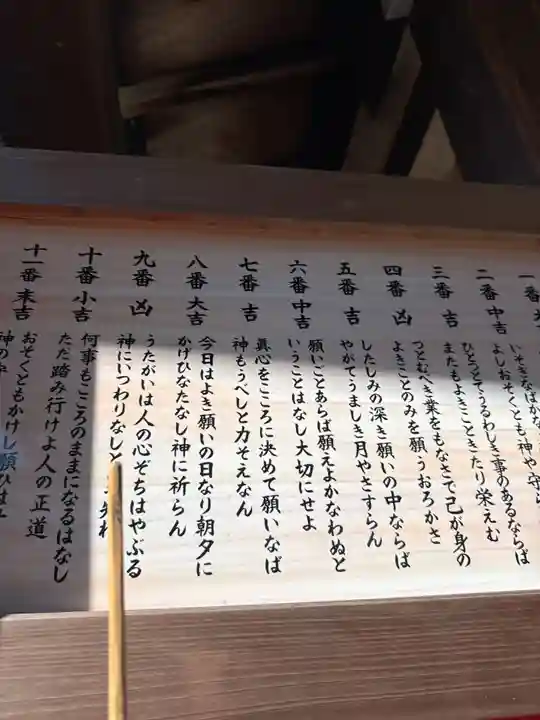 一番
いそぎなばかな
よしおそくとも神や守ら
二番 中吉
ひとつとてうるわしき事のあるならば
またもよきこときたり栄えむ
三番 吉
つとむべき業をもなさで己が身の
よきことのみを願うおろかさ
四番 凶
したしみの深き願いの中ならば
やがてうましき月やさすらん
五番 吉
願いごとあらば願えよかなわぬと
いうことはなし大切にせよ
六番 中吉
真心をこころに決めて願いなば
神もうべしと力そえなん
七番 吉
今日はよき願いの日なり朝夕に
かげひなたなし神に祈らん
八番 大吉
うたがいは人の心ぞちはやぶる
神にいつわりなしと
九番 凶
何事もこころのままになるはなし
ただ踏み行けよ人の正道
十番 小吉
おそくともかけし願ひは
神の
十一番 末吉